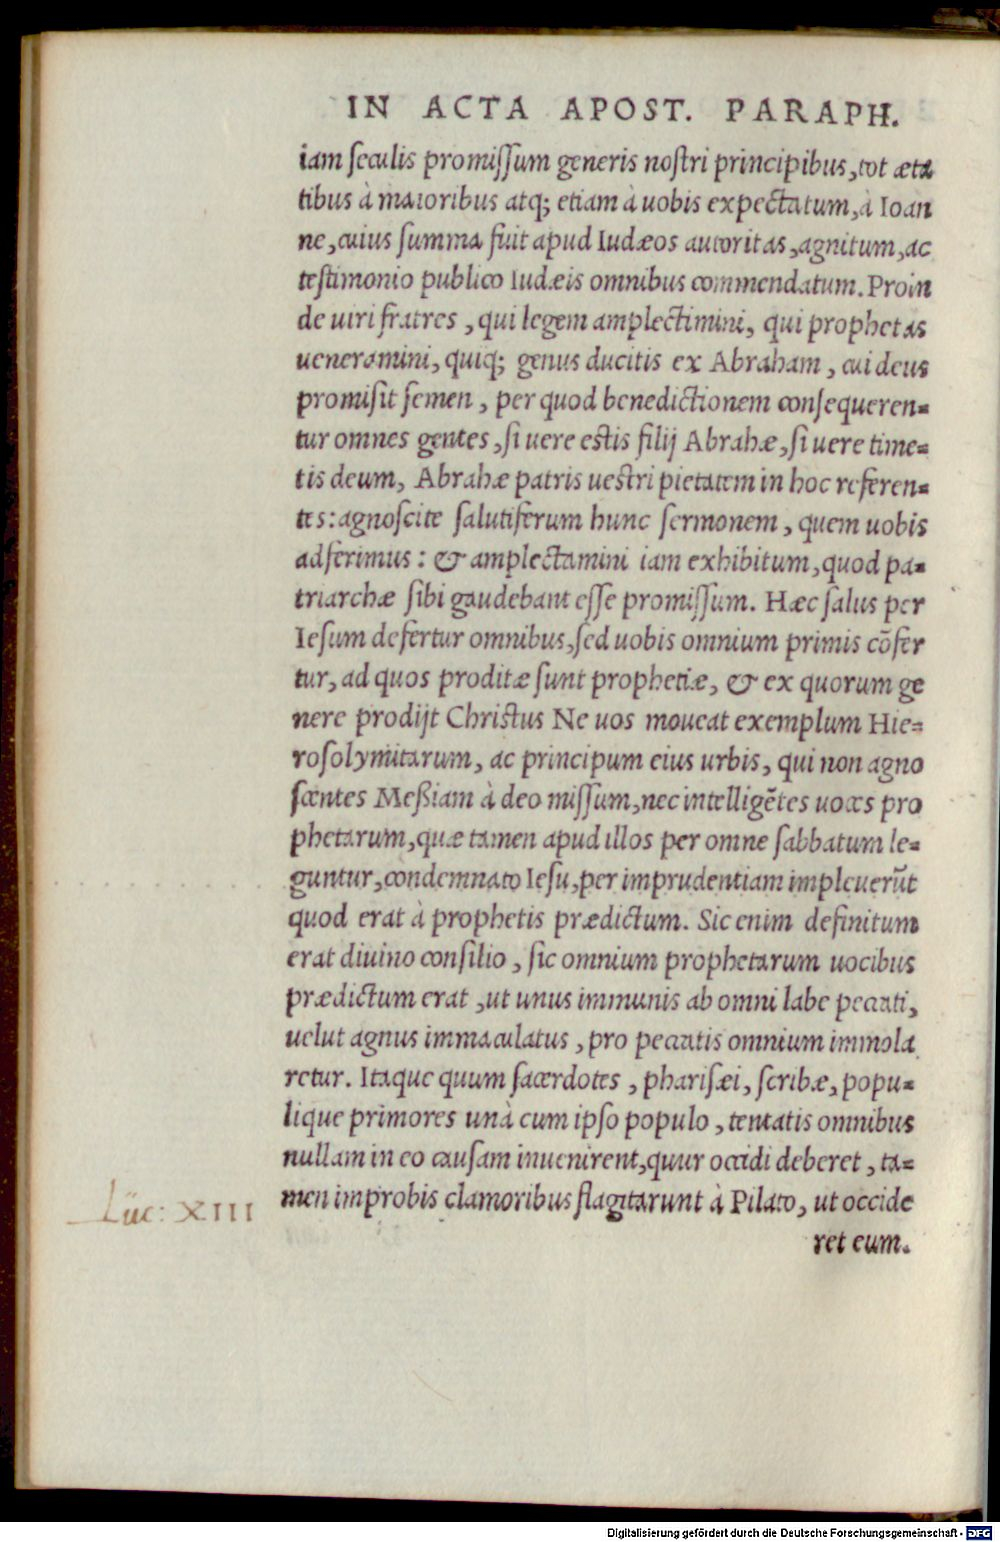 IN ACTA APOST. PARAPH.
iam seculis promissum generis nostri principibus, tot æta
tibus à maioribus atq; etiam à uobis expectatum, à Ioan
ne, cuius summa fuit apud Iudæos autoritas, agnitum, ac
testimonio publico Iudæis omnibus commendatum. Proin
de uiri fratres, qui legem amplectimini, qui prophetas
ueneramini, quiq; genus ducitis ex Abraham, cui deus
promisit semen, per quod benedictionem consequeren-
tur omnes gentes, si uere estis filij Abrahæ, si uere time-
tis deum, Abrahæ patris uestri pietatem in hoc referen-
tes: agnoscite salutiferum hunc sermonem, quem uobis
adferimus: & amplectamini iam exhibitum, quod pa-
triarchæ sibi gaudebant esse promissum. Hæc salus per
Iesum defertur omnibus, sed uobis omnium primis cõfer
tur, ad quos proditæ sunt prophetiæ, & ex quorum ge
nere prodijt Christus Ne uos moueat exemplum Hie-
rosolymitarum, ac principum eius urbis, qui non agno
scentes Meßiam à deo missum, nec intelligẽtes uoces pro
phetarum, quæ tamen apud illos per omne sabbatum le-
guntur, condemnato Iesu, per imprudentiam impleuerũt
quod erat à prophetis prædictum. Sic enim definitum
erat diuino consilio, sic omnium prophetarum uocibus
prædictum erat, ut unus immunis ab omni labe peccati,
uelut agnus immaculatus, pro peccatis omnium immola
retur. Itaque quum sacerdotes, pharisæi, scribæ, popu-
lique primores unà cum ipso populo, tentatis omnibus
nullam in eo causam inuenirent, quur occidi deberet, ta-
men improbis clamoribus flagitarunt à Pilato, ut occide
ret eum.
Luc: XIII
Digitalisierung gefördert durch die Deutsche Forschungsgemeinschaft - DFG